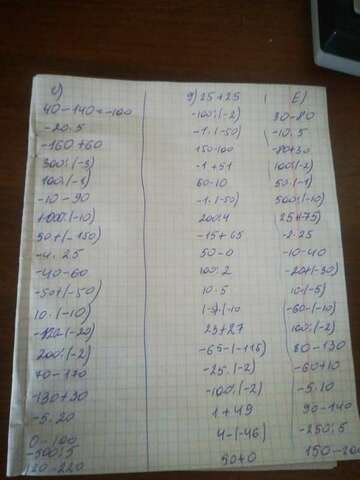 c)
40-140=-100
-20·5
-160+60
300:(-3)
100:(-1)
-10-90
1000:(-10)
50+(-150)
-4·25
-40-60
-50+(-50)
10·(-10)
-120-(-20)
200:(-2)
70-170
-130+30
-5·20
0-100
-500:5
120-220
g) 25+25
-100:(-2)
-1·(-50)
150-100
-1+51
60-10
-1·(-50)
200:4
-15+65
50-0
100:2
10·5
23+27
-65-(-115)
-25·(-2)
-100:(-2)
1+49
4-(-46)
50+0
E)
30-80
-10·5
-80+30
100:(-2)
50·(-1)
500:(-10)
25+(-75)
-2·25
-10-40
-20+(-30)
10·(-5)
-60-(-10)
100:(-2)
80-130
-60+10
-5·10
90-140
-250:5
150-200